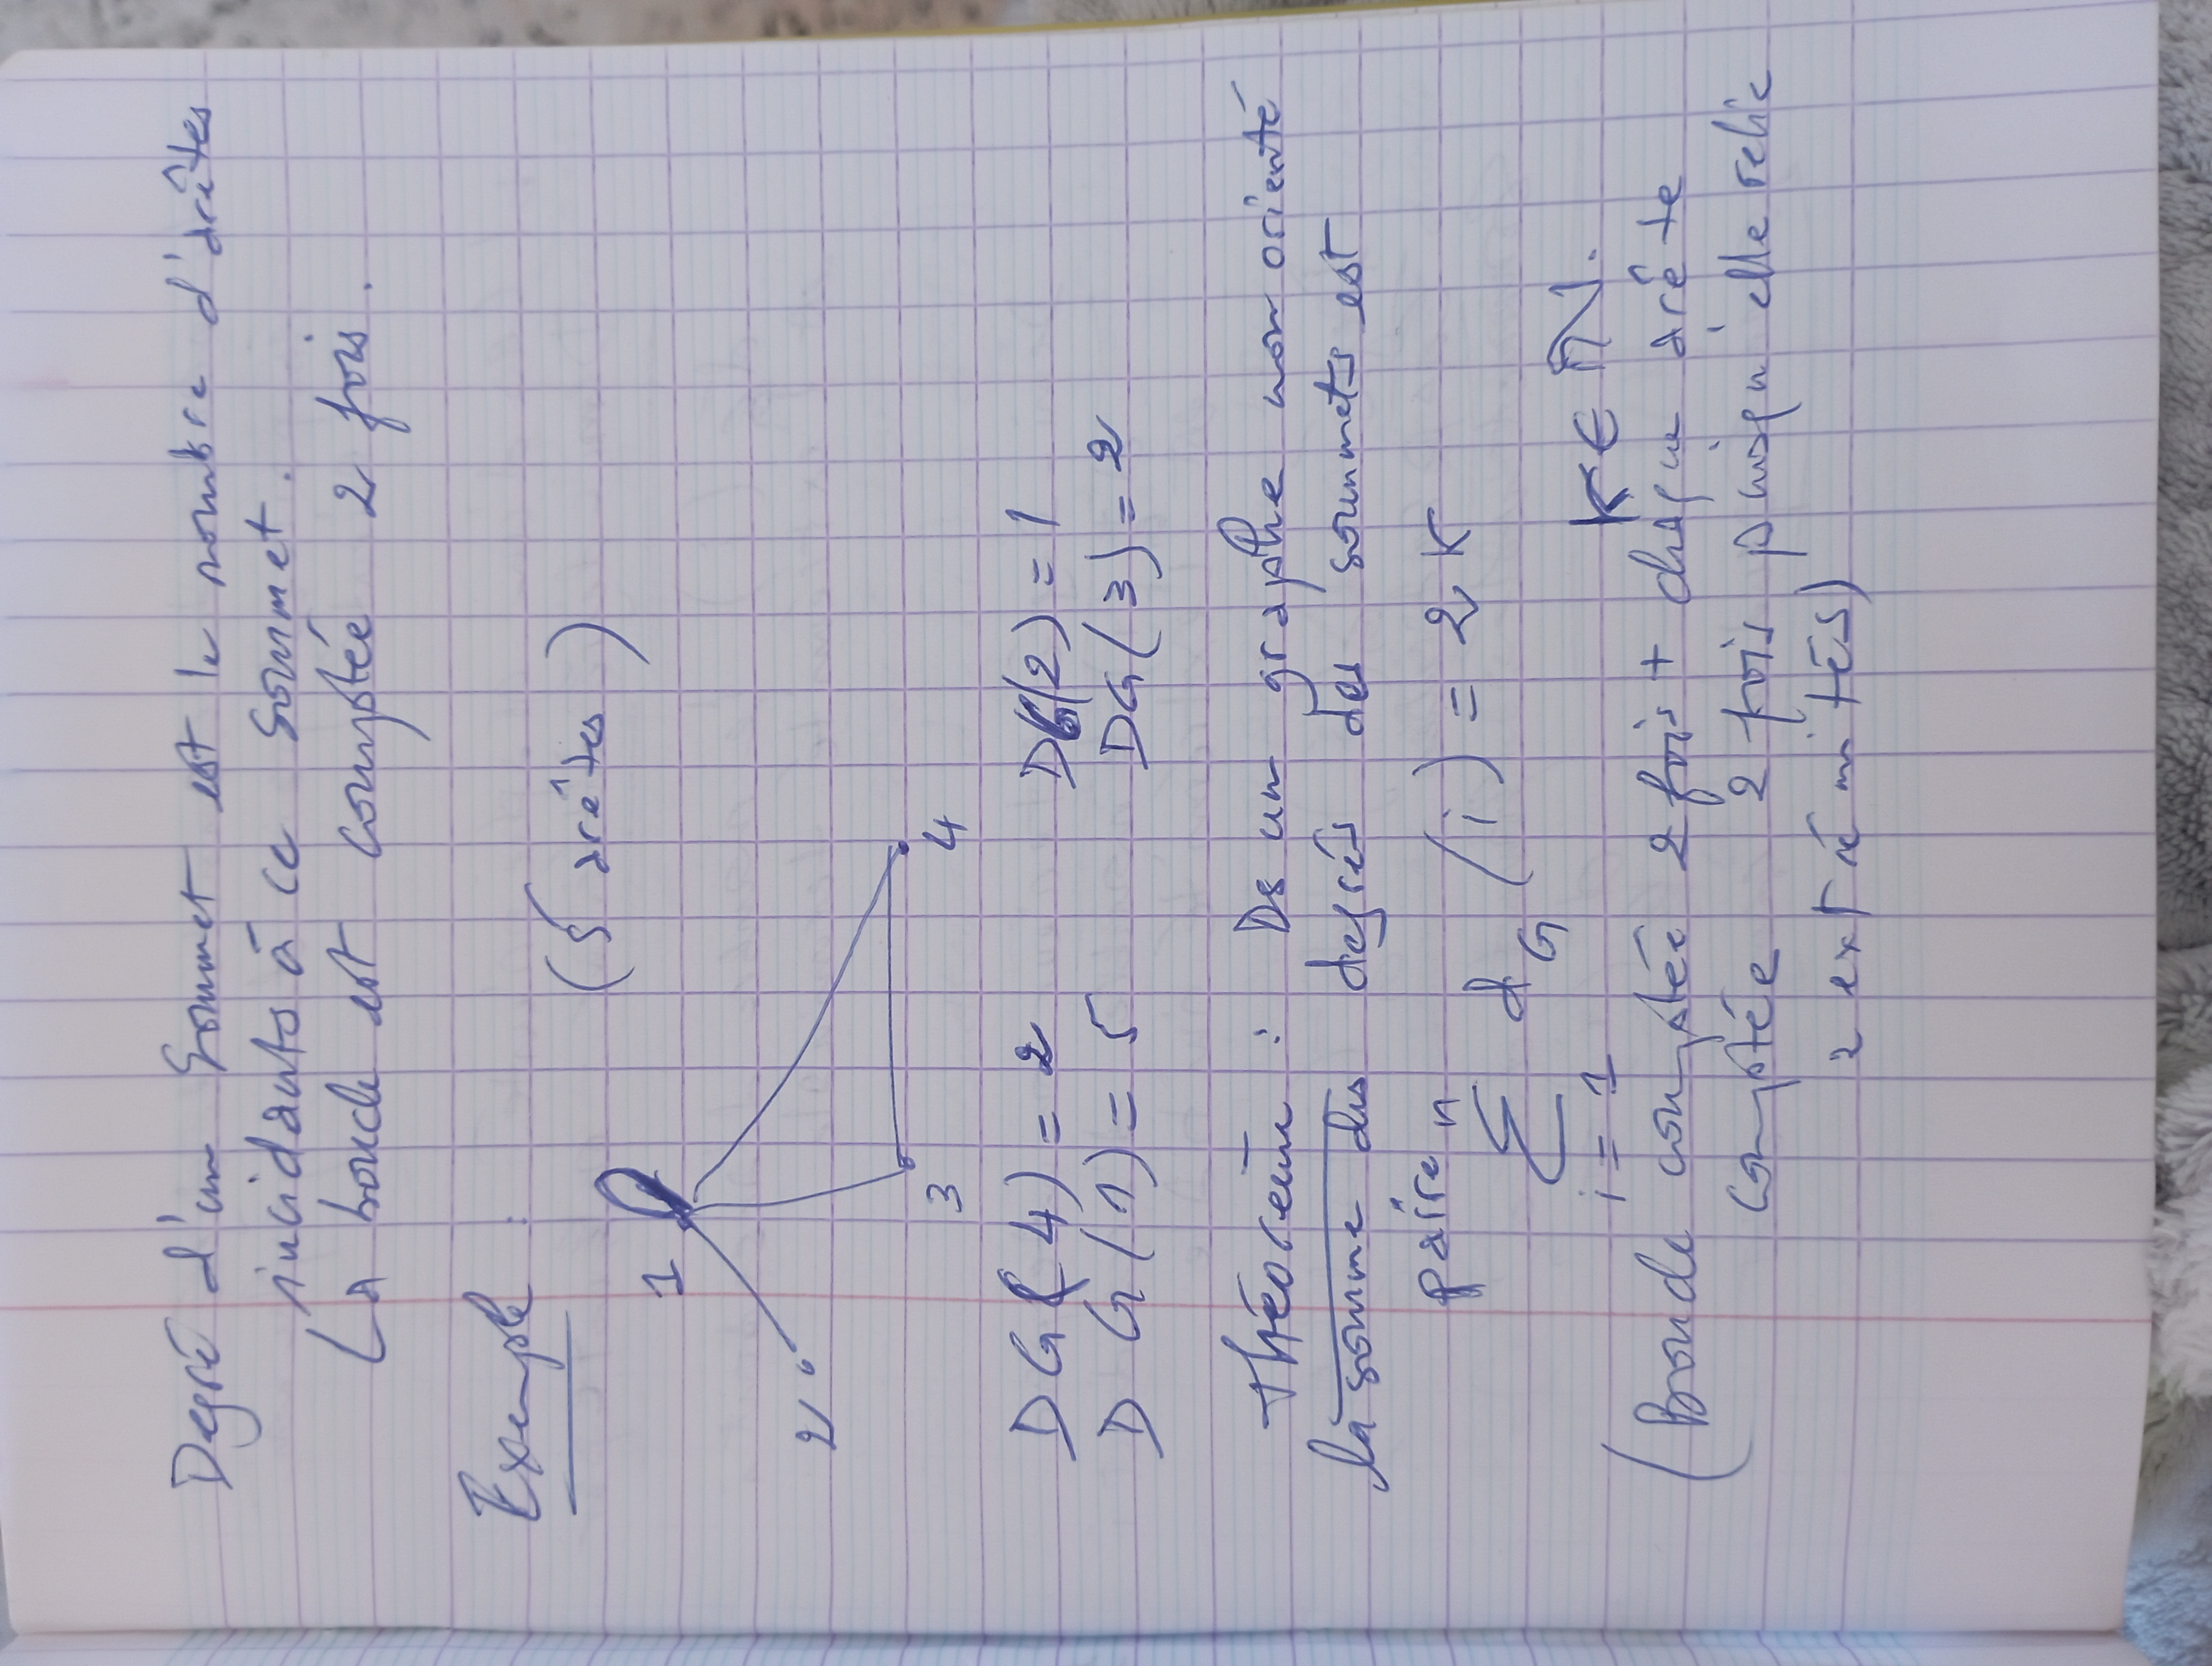 Degré d'un Sommet est le nombre d'arêtes
incidants à ce Sommet.
La boucle est comptée 2 fois.
Exemple :
(5 arêtes)
1
2
3
4
DG(4) = 2 DG(2) = 1
DG(1) = 5 DG(3) = 2
Théorème : Ds un graphe non orienté
la somme des degrés des sommets est
paire
n
∑ d_G (i) = 2K
i = 1
K ∈ ℕ.
(Boucle comptée 2 fois + chaque arête
comptée 2 fois puisqu'elle relie
2 extrémités)